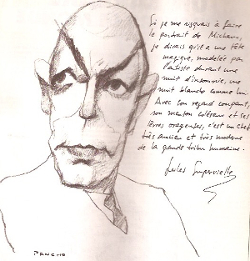 Si je me risquais à faire
le portrait de Michaux,
je dirais qu'il a une tête
magique, modelée par
l'artiste durant une
nuit d'insomnie, une
nuit blanche comme lui
Avec son regard coupant,
son menton coléreux et ses
lèvres orageuses, c'est un chef
très ancien et très moderne
de la grande tribu humaine.
Jules Supervielle
PANCHO